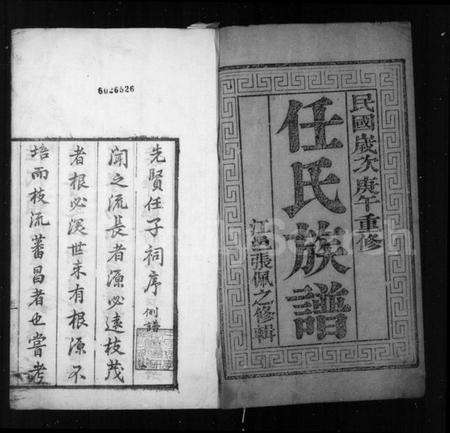 民國歲次庚午重修
任氏族譜
江邑張佩之修輯
6026526
先賢任子祠序 例譜
聞之流長者源必遠枝茂
者根必深世未有根源不
培而枝流蕃昌者也嘗考